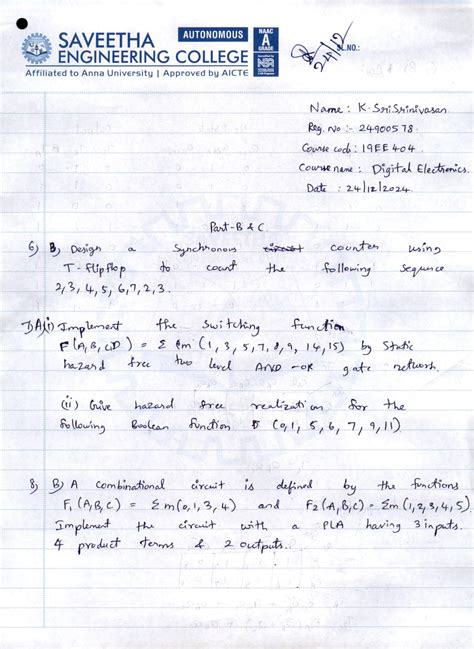 SAVEETHA
ENGINEERING COLLEGE
AUTONOMOUS
NAAC
A
GRADE
Affiliated to Anna University | Approved by AICTE
24/12
SL.NO.:
Name : K. SriSrinivasan
Reg. No :- 24900578
Course code : 19EE404
Course name : Digital Electronics.
Date : 24/12/2024
Part-B & C
6) B) Design a Synchronous circuit counter using
T-Flipflop to count the following sequence
2,3,4,5,6,7,2,3.
7) A) (i) Implement the switching function
F(A,B,C,D) = Σ m(1,3,5,7,8,9,14,15) by static
hazard free two level AND-OR gate network.
(ii) Give hazard free realization for the
following Boolean function (0,1,5,6,7,9,11)
8) B) A combinational circuit is defined by the functions
F1(A,B,C) = Σm(0,1,3,4) and F2(A,B,C) = Σm(1,2,3,4,5).
Implement the circuit with a PLA having 3 inputs.
4 product terms & 2 outputs.